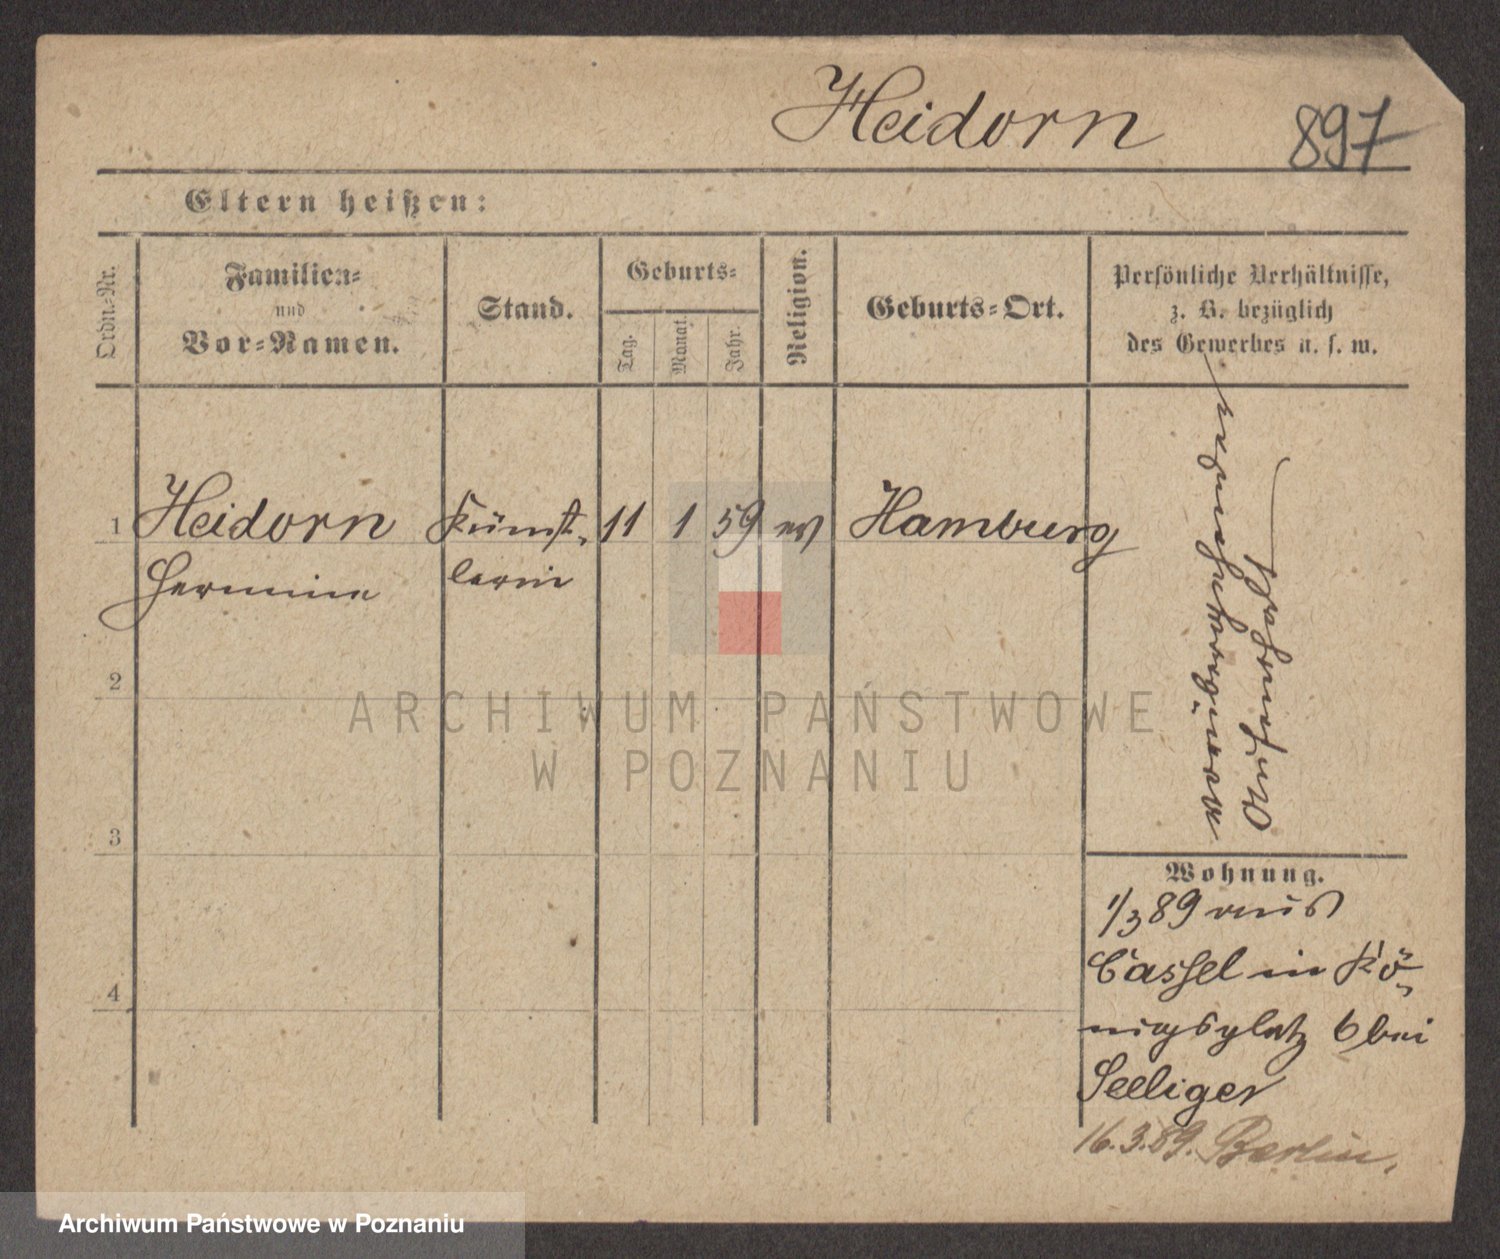 Heidorn 897
Eltern heißen:
Ordn.-Nr.
Familien-
und
Vor-Namen.
Stand.
Geburts-
Tag.
Monat.
Jahr.
Religion.
Geburts-Ort.
Persönliche Verhältnisse,
z. B. bezüglich
des Gewerbes u. s. w.
1 Heidorn Künst- 11 1 59 ev Hamburg
Hermine lerin
2
3
4
Wohnung.
1/3 89 aus
Cassel in Kö-
nigsplatz 6 bei
Seeliger
16.3.89. Berlin.
ARCHIWUM PAŃSTWOWE
W POZNANIU
Archiwum Państwowe w Poznaniu